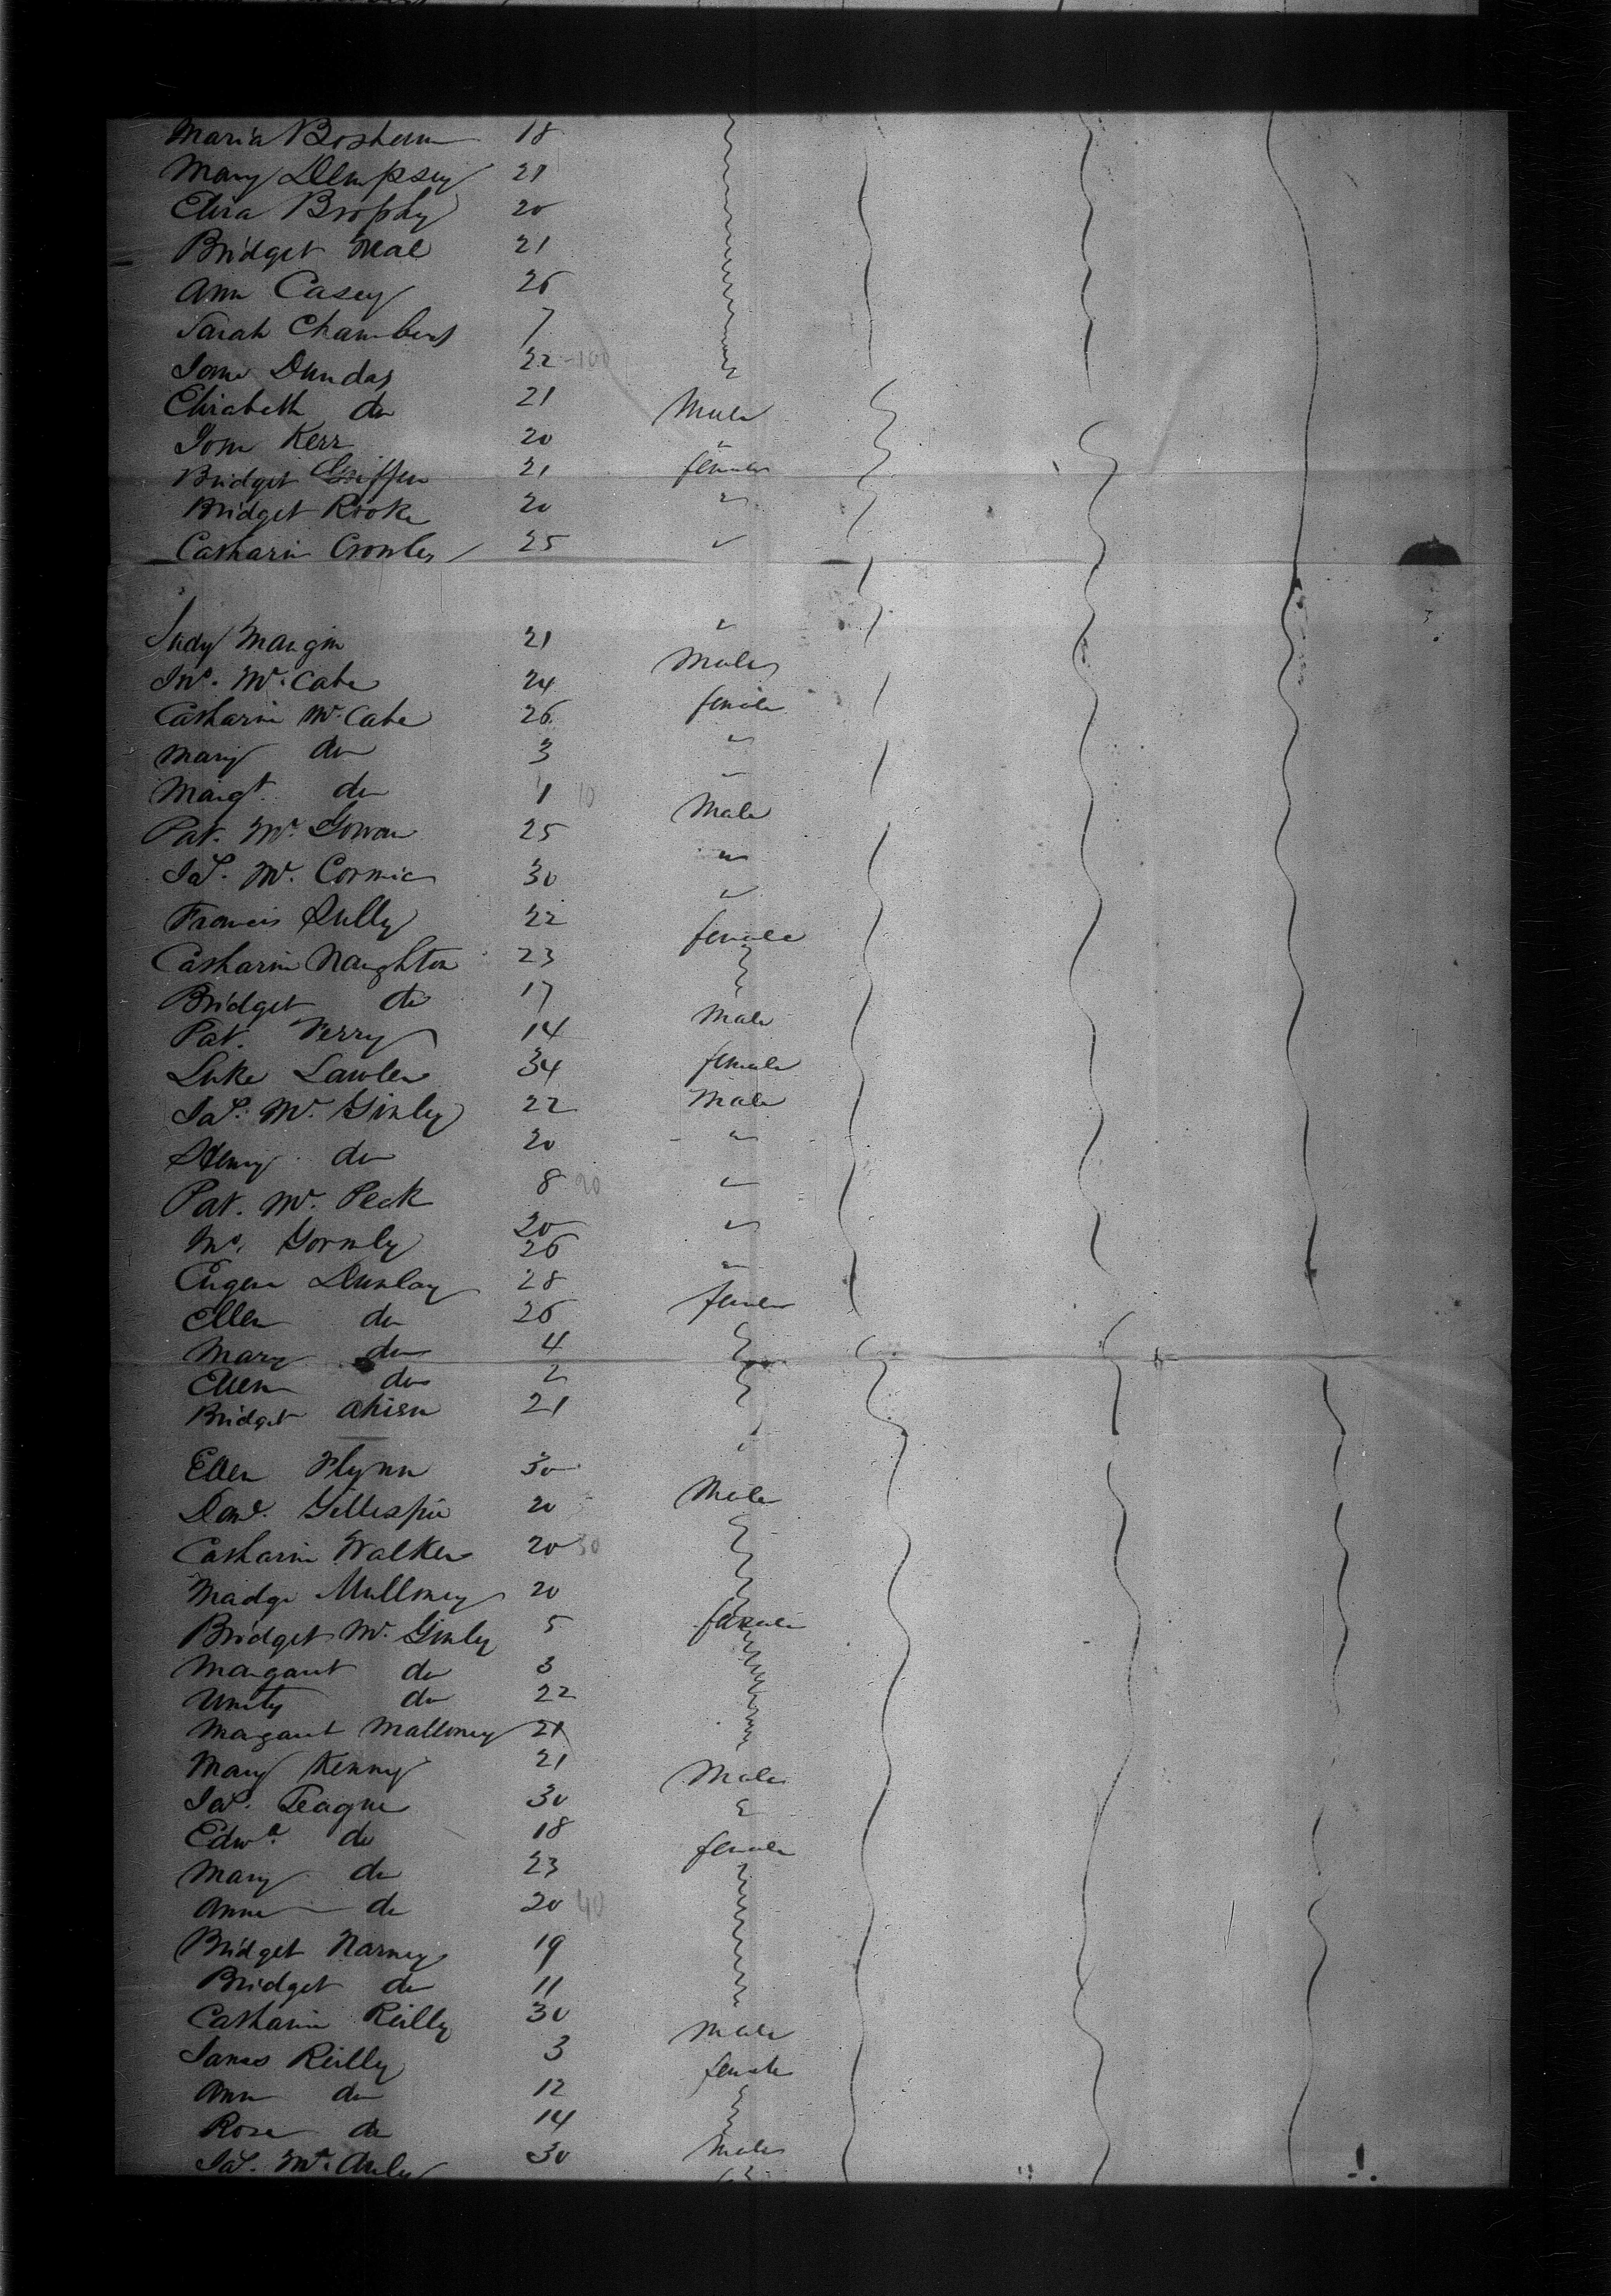 Maria Boshem 18
Mary Dempsey 21
Eliza Brophy 20
Bridget Neal 21
Ann Casey 26
Sarah Chambers 7
Dundas 22 -100
Elizabeth do 21 Male
Kerr 20 "
Bridget Griffen 21 female
Bridget Rooke 20 "
Catharin Crowley 25 "
Judy Mangin 21 "
Jno. Mc. Cabe 24 Male
Catharin Mc. Cabe 26 female
Mary do 3 "
Margt. do 1 10 "
Pat. Mc. Gowan 25 Male
Jas. Mc. Cormic 30 "
Francis Sully 22 "
Catharin Naughton 23 female
Bridget do 17
Pat. Ferry 14 Male
Luke Lawler 34 female
Jas. Mc. Ginley 22 Male
Henry do 20 "
Pat. Mc. Peak 8 20 "
20
Jno. Gormly 26 "
Eugene Dunlay 28 "
Ellen do 26 female
Mary do 4
Ellen do 2
Bridget Ahisn 21
Ellen Flynn 30 "
Danl. Gillespie 20 Male
Catharin Walker 20 30
Madge Mulloney 20
Bridget Mc. Ginley 5 female
Margaret do 3
Unity do 22
Margaret Malloney 21
Mary Kenny 21
Jas. Teague 30 Male
Edwd. do 18
Mary do 23 female
Anne do 20 40
Bridget Narney 19
Bridget do 11
Catharin Reilly 30
James Reilly 3 Male
Ann do 12 female
Rose do 14
Jas. Mc. Auley 30 Male